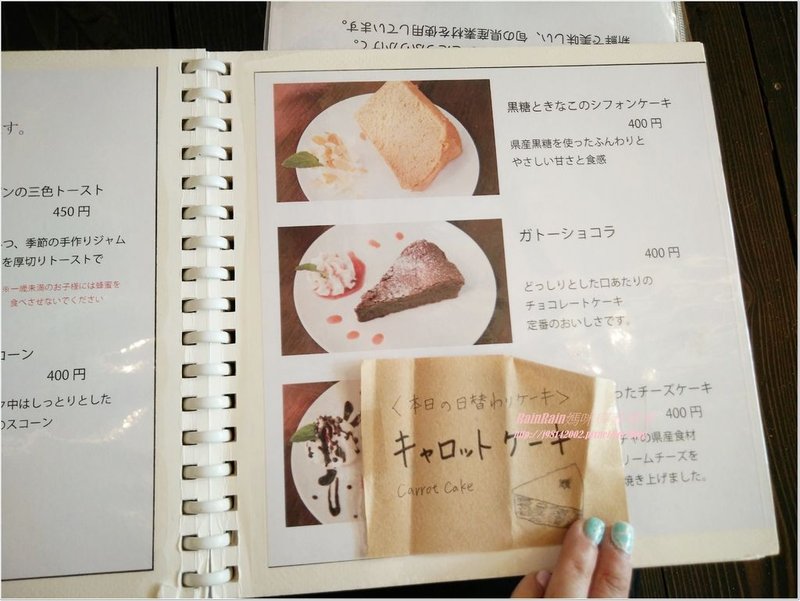 新鮮で美味しい、旬の県産素材を使用しています。
す。
ンの三色トースト
450円
つ、季節の手作りジャム
を厚切りトーストで
※一歳未満のお子様には蜂蜜を
食べさせないでください
コーン
400円
ク中はしっとりとした
のスコーン
黒糖ときなこのシフォンケーキ
400円
県産黒糖を使ったふんわりと
やさしい甘さと食感
ガトーショコラ
400円
どっしりとした口あたりの
チョコレートケーキ
定番のおいしさです。
ったチーズケーキ
400円
チャの県産食材
リームチーズを
焼き上げました。
<本日の日替わりケーキ>
キャロットケーキ
Carrot Cake
RainRain